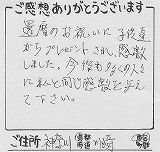 ご感想ありがとうございます
還暦のお祝いに子供達
からプレゼントされ、感激
しました。今後も多くの人々
に私と同じ感動を与え
て下さい。
ご住所 神奈川 都道府県 川崎 市